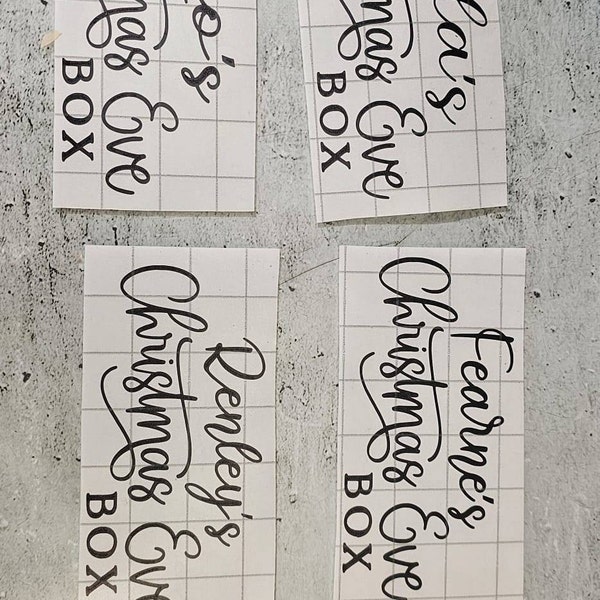 o's
mas Eve
BOX
la's
mas Eve
BOX
Renley's
Christmas Eve
BOX
Fearne's
Christmas Eve
BOX